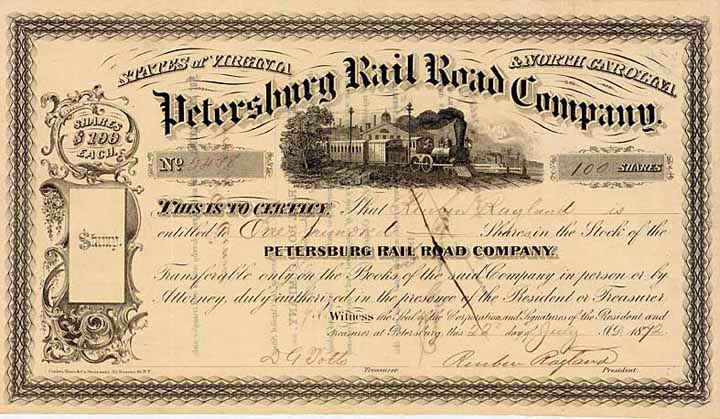 STATES of VIRGINIA & NORTH CAROLINA
Petersburg Rail Road Company.
SHARES
$100
EACH.
No
100 SHARES
THIS IS TO CERTIFY, That Reuben Ragland is
entitled to One hundred Shares in the Stock of the
PETERSBURG RAIL ROAD COMPANY.
Transferable only on the Books of the said Company in person or by
Attorney, duly authorized in the presence of the President or Treasurer
Stamp.
Witness the Seal of the Corporation and Signatures of the President and
Treasurer at Petersburg, this 22d day of July A.D. 1872
D G Potts Reuben Ragland
Treasurer President